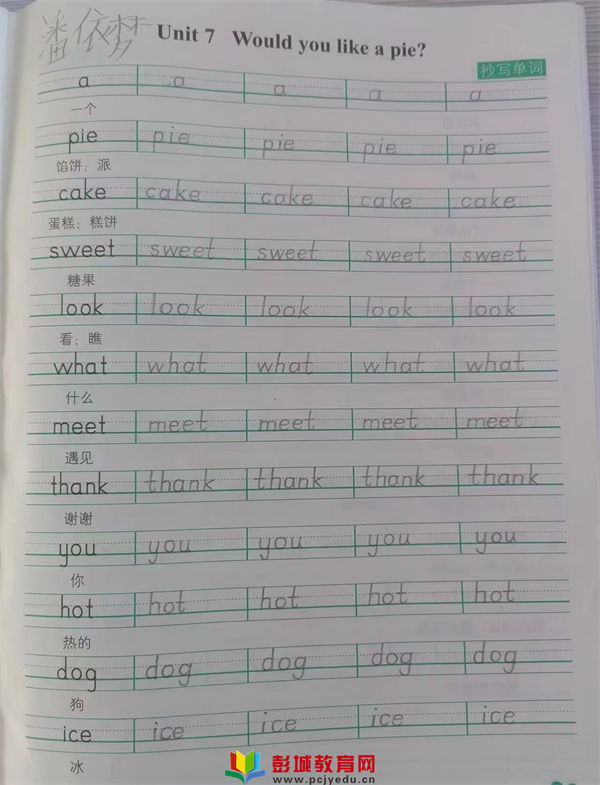 潘依梦 Unit 7 Would you like a pie?
抄写单词
a a a a a
一个
pie pie pie pie pie
馅饼；派
cake cake cake cake cake
蛋糕；糕饼
sweet sweet sweet sweet sweet
糖果
look look look look look
看；瞧
what what what what what
什么
meet meet meet meet meet
遇见
thank thank thank thank thank
谢谢
you you you you you
你
hot hot hot hot hot
热的
dog dog dog dog dog
狗
ice ice ice ice ice
冰
彭城教育网
www.pcjyedu.cn